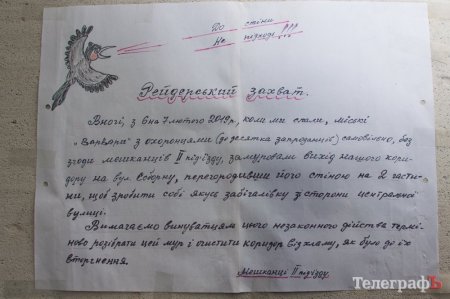 До стіни
Не підходь!!!
Рейдерський захват.
Вночі, з 6 на 7 лютого 2019 р, коли ми спали, міські
"Варвари" з охоронцями (до десятка запроданців) самовільно, без
згоди мешканців II під'їзду, замурували вихід нашого кори-
дору на вул. Соборну, перегородивши його стіною на 2 части-
ни, щоб зробити собі якусь забігалівку з сторони центральної
вулиці.
Вимагаємо винуватцям цього незаконного действа термі-
ново розібрати цей мур і очистити коридор від хламу, як було до їх
вторгнення.
Мешканці II під'їзду.
ТелеграфЪ